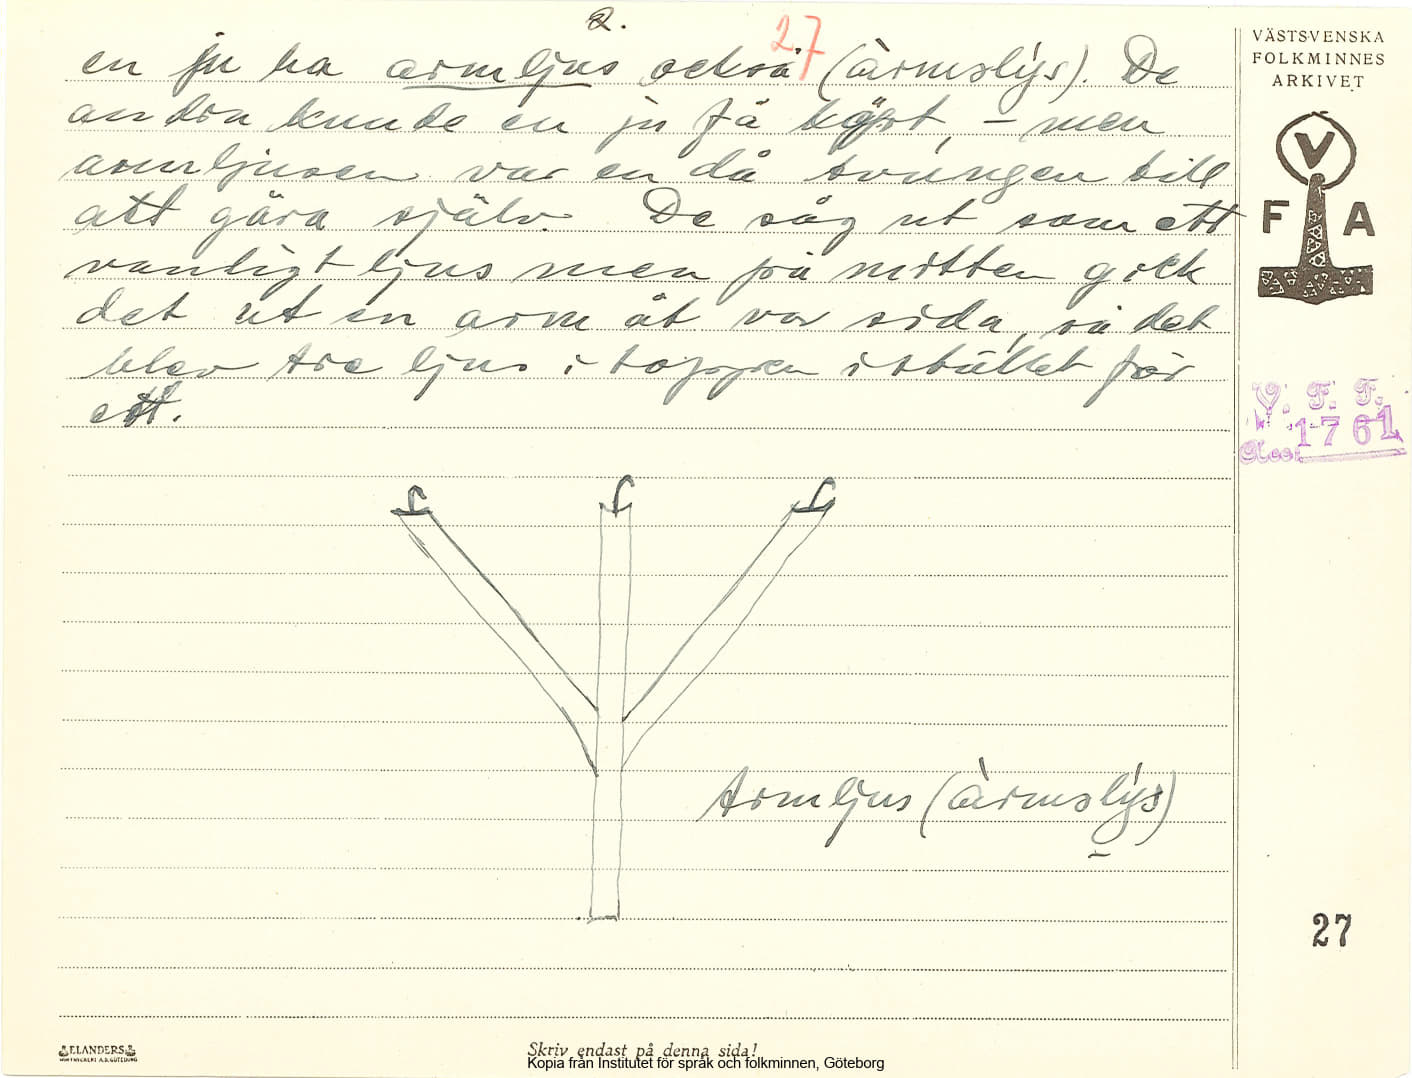 2.
27
en ju ha armljus också (àrmslýs). De
andra kunde en ju få köpt, – men
armljusen var en då tvungen till
att göra själv. De såg ut som ett
vanligt ljus men på mitten gick
det ut en arm åt var sida, så det
blev tre ljus i toppen i stället för
ett.
Armljus (àrmslýs)
VÄSTSVENSKA
FOLKMINNES
ARKIVET
V
F A
V. F. F.
Acc. 1761
27
ELANDERS
Skriv endast på denna sida!
Kopia från Institutet för språk och folkminnen, Göteborg